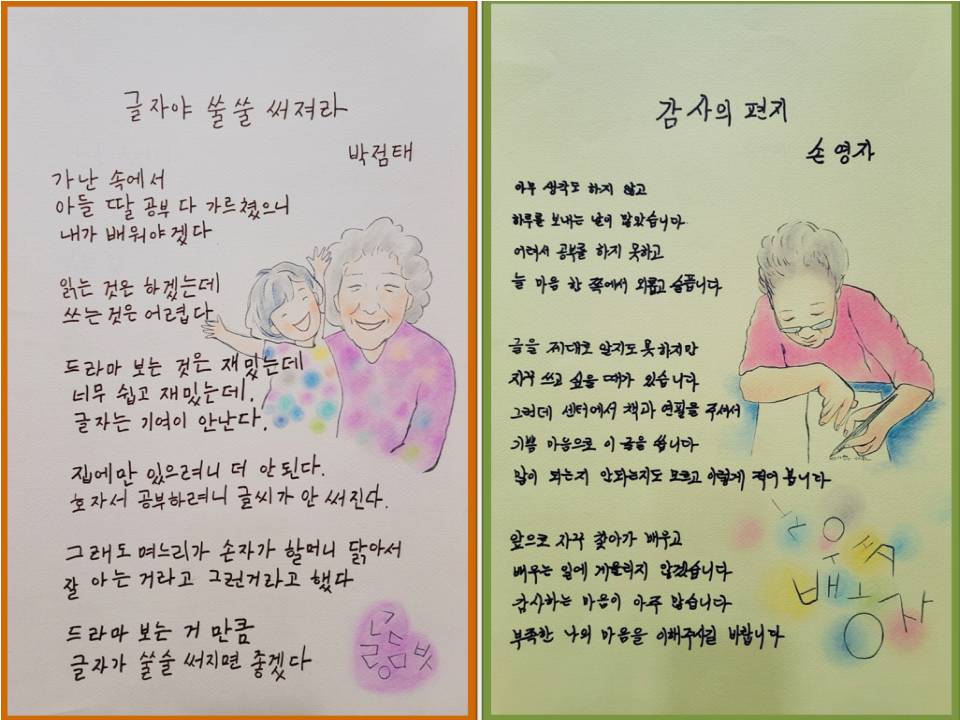 글자야 쑬쑬 써져라
박점태
가난 속에서
아들 딸 공부 다 가르쳤으니
내가 배워야겠다
읽는 것은 하겠는데
쓰는것은 어렵다
드라마 보는 것은 재밌는데
너무 쉽고 재밌는데,
글자는 기억이 안난다.
집에만 있으려니 더 안된다.
혼자서 공부하려니 글씨가 안 써진다.
그래도 며느리가 손자가 할머니 닮아서
잘 아는 거라고 그런거라고 했다
드라마 보는 거 만큼
글자가 쑬술 써지면 좋겠다
감사의 편지
손영자
아무 생각도 하지 않고
하루를 보내는 날이 많았습니다
어려서 공부를 하지 못하고
늘 마음 한 쪽에서 외롭고 슬픕니다
글을 제대로 알지도 못하지만
자꾸 쓰고 싶을 때가 있습니다
그런데 센터에서 책과 연필을 주셔서
기쁨 마음으로 이 글을 씁니다
말이 되는지 안되는지도 모르고 이렇게 적어 봅니다
앞으로 자꾸 찾아가 배우고
배우는 일에 게을리지 않겠습니다
감사하는 마음이 아주 많습니다
부족한 나의 마음을 이해주시길 바랍니다